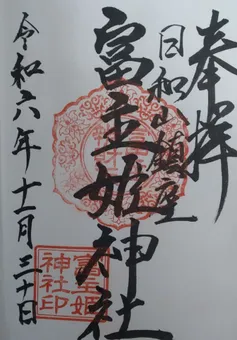 奉拝
日和山鎮座
富主姫神社
令和六年十一月三十日
富主姫
神社印